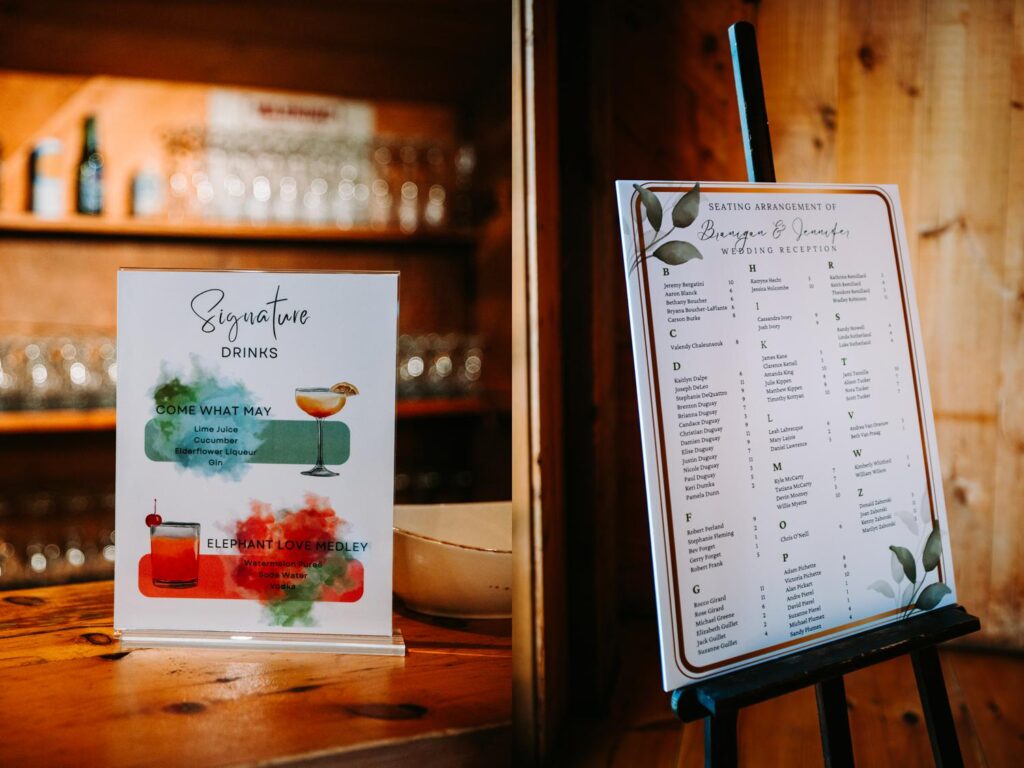 Signature
DRINKS
COME WHAT MAY
Lime Juice
Cucumber
Elderflower Liqueur
Gin
ELEPHANT LOVE MEDLEY
Watermelon Puree
Soda Water
Vodka
SEATING ARRANGEMENT OF
Branigan & Jennifer
WEDDING RECEPTION
B
Jeremy Bergatini 10
Aaron Blanck 6
Bethany Boucher 6
Bryana Boucher-LaPlante 6
Carson Burke 8
C
Valendy Chaleunsouk 8
D
Kaitlyn Dalpe 6
Joseph DeLeo 11
Stephanie DeQuattro
Brenton Duguay
Brianna Duguay
Candace Duguay
Christian Duguay
Damien Duguay
Elise Duguay
Justin Duguay
Nicole Duguay
Paul Duguay
Keri Dumka
Pamela Dunn 2
F
Robert Ferland 9
Stephanie Fleming 2
Bev Forget 1
Gerry Forget 1
Robert Frank 5
G
Rocco Girard 11
Rose Girard 11
Michael Greene 2
Elizabeth Guillet
Jack Guillet
Suzanne Guillet 4
H
Kamyne Hecht
Jessica Holcombe
I
Cassandra Ivory 9
Josh Ivory 9
K
James Kane
Clarence Kettell
Amanda King
Julie Kippen
Matthew Kippen 10
Timothy Kotnyan
L
Leah Labrecque 6
Mary Lajoie 2
Daniel Lawrence 5
M
Kyle McCarty 7
Tatiana McCarty 7
Devin Mooney
Willie Myette
O
Chris O'Neil 6
P
Adam Pichette 8
Victoria Pichette 8
Alan Pickart 10
Andre Pierel 1
David Pierel 1
Suzanne Pierel 1
Michael Plumez 4
Sandy Plumez 4
R
Kathrine Remillard
Keith Remillard
Theodore Remillard
Bradley Robinson
S
Randy Russell
Linda Sutherland
Luke Sutherland
T
Jami Tantillo
Alison Tucker
Nora Tucker
Scott Tucker
V
Andrea Van Orsouw
Beth Van Praag
W
Kimberly Whitford
William Wilson
Z
Donald Zaborski
Joan Zaborski
Kenny Zaborski
Marilyn Zaborski